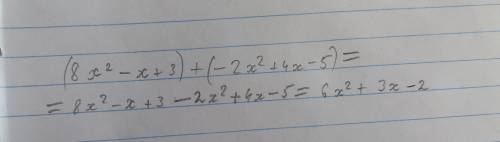 (8x² - x + 3) + (-2x² + 4x - 5) =
= 8x² - x + 3 - 2x² + 4x - 5 = 6x² + 3x - 2